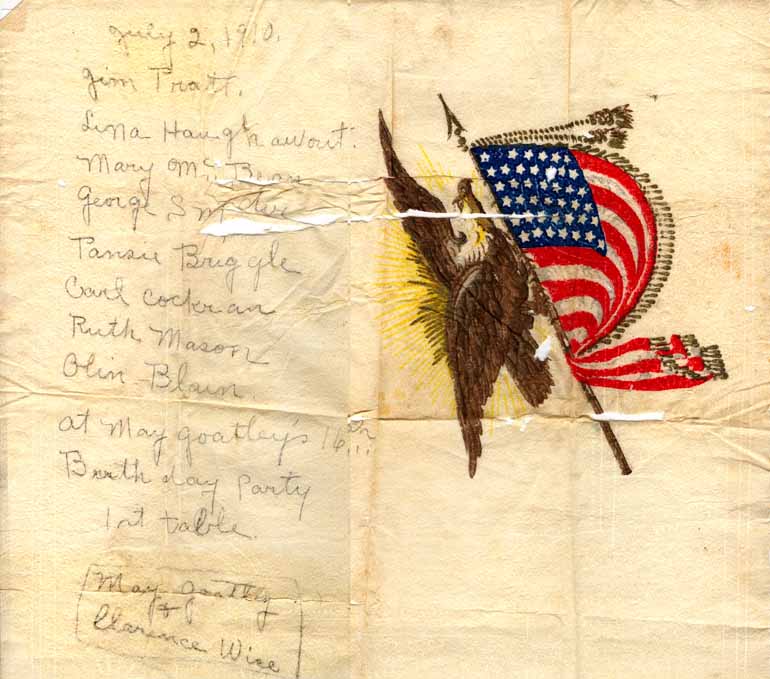 July 2, 1910.
Jim Pratt.
Lina Haughawout.
Mary Mc Bean
George
Pansie Briggle
Carl Cockran
Ruth Mason
Olin Blain.
at May Goatley's 16th
Birth day party
1st table.
May Goatley
+
Clarence Wise